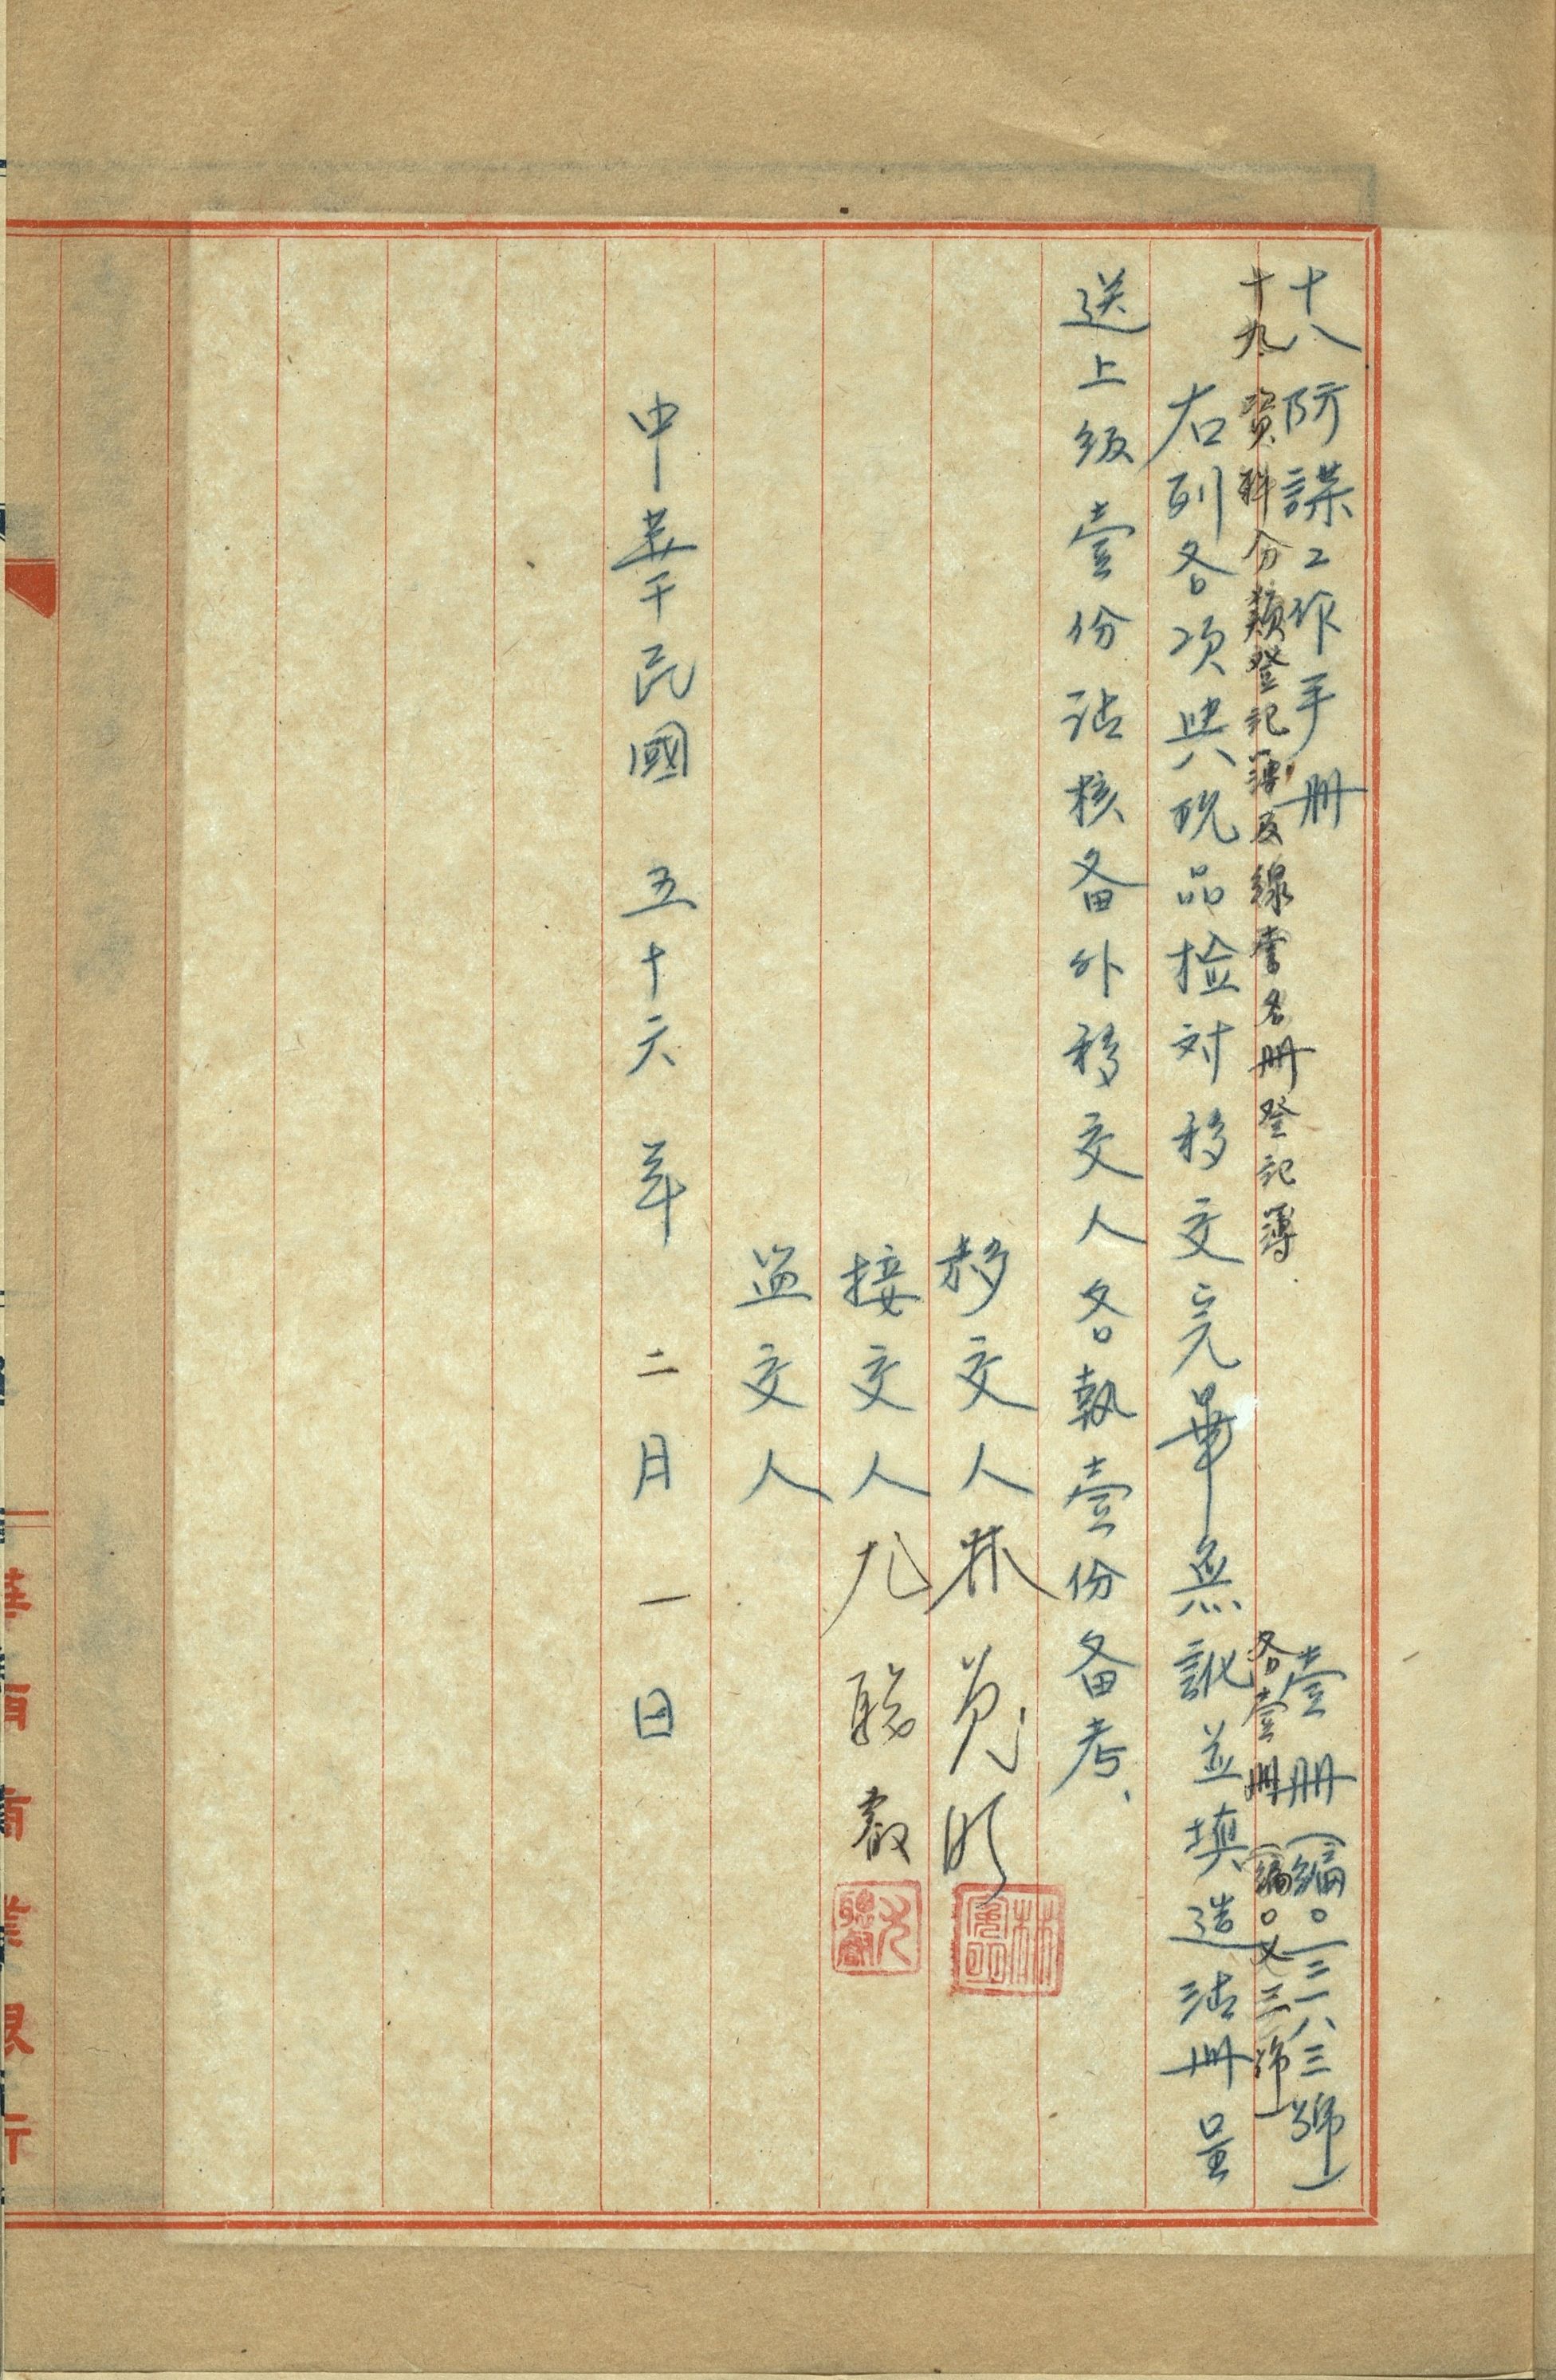 十八防諜工作手册 壹册(編〇一三一八三號)
十九資料分類登記簿及線索名册登記簿 各壹册(編〇又三號)
右列各項與現品检对移交完畢無訛並填造沾册呈
送上级壹份沾核备外移交人各執壹份备考、
移交人林
接交人尤聪叡
监交人
中華民國 五十六年 二月一日
華南商業銀行